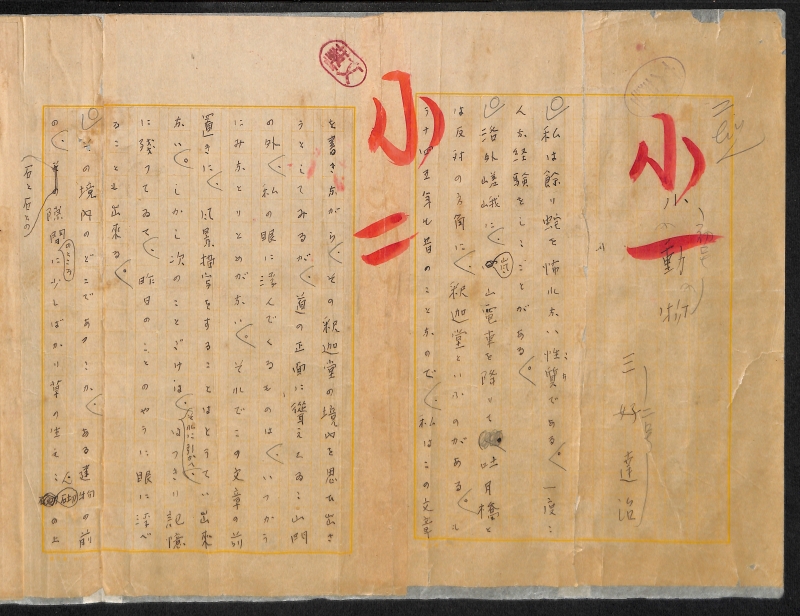 小一
小動物
三好達治
私は餘り蛇を怖れない性質である、一度こ
んな経験をしたことがある。
洛外嵯峨に、嵐山電車を降りて吐月橋と
は反対の方角に、釈迦堂といふのがある、も
う十四五年も昔のことなので、私はこの文章
小二
を書きながら、その釈迦堂の境内を思ひ出さ
うとしてみるが、道の正面に聳えてゐる山門
の外、私の眼に浮んでくるものは、いつかう
にみなとりとめがない、それでこの文章の前
置きに、風景描写をすることはとうてい出来
ない、しかし次のことだけは、はつきり記憶
に残つてゐて、昨日のことのやうに眼に浮べ
ることも出来る。
その境内のどこであつたか、ある建物の前
の、隙間に少しばかり草の生えた の上
のところ
(石と石との